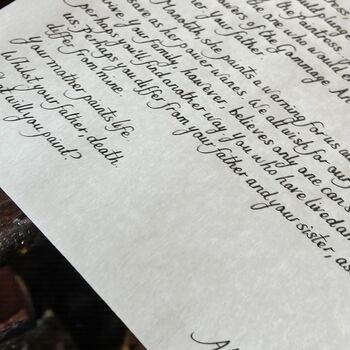 plunge
the painless
the one who would
powers of the Gommage. An
your father
Monolith, she paints a warning for us
save as her power wanes. We all wish for our
Your family, however, believes only one can
perhaps you'll find another way, you who have lived
us. Perhaps you differ from your father and your sister, as
differ from mine.
Your mother paints life.
Whilst your father, death.
will you paint?